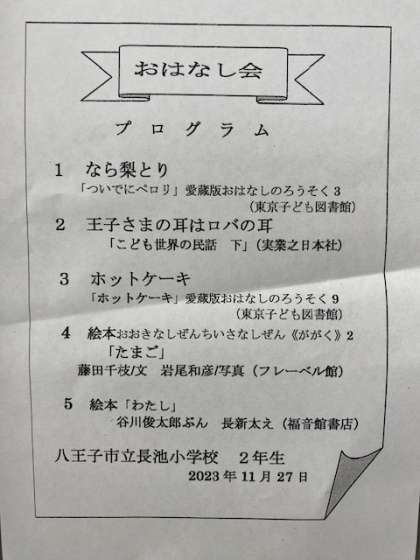 おはなし会
プログラム
1 なら梨とり
「ついでにペロリ」愛蔵版おはなしのろうそく3
（東京子ども図書館）
2 王子さまの耳はロバの耳
「こども世界の民話 下」（実業之日本社）
3 ホットケーキ
「ホットケーキ」愛蔵版おはなしのろうそく9
（東京子ども図書館）
4 絵本おおきなしぜんちいさなしぜん《ががく》2
「たまご」
藤田千枝/文 岩尾和彦/写真（フレーベル館）
5 絵本「わたし」
谷川俊太郎ぶん 長新太え（福音館書店）
八王子市立長池小学校 2年生
2023年11月27日